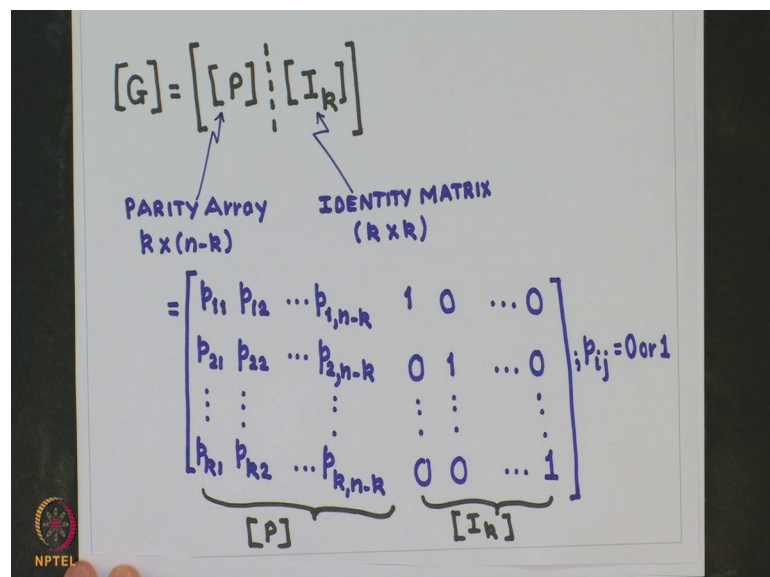 [G] = [[P] ⋮ [I_k]]
PARITY Array
k x (n-k)
IDENTITY MATRIX
(k x k)
= [p_11 p_12 ... p_1,n-k 1 0 ... 0
p_21 p_22 ... p_2,n-k 0 1 ... 0
⋮ ⋮ ⋮ ⋮ ⋮ ⋮
p_k1 p_k2 ... p_k,n-k 0 0 ... 1] ; p_ij = 0 or 1
[P] [I_k]
NPTEL